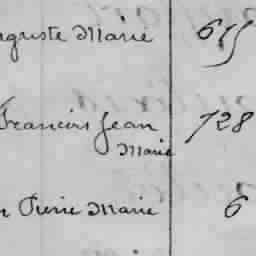 uguste Marie 615
Francois Jean 728
Marie
Pierre Marie 6